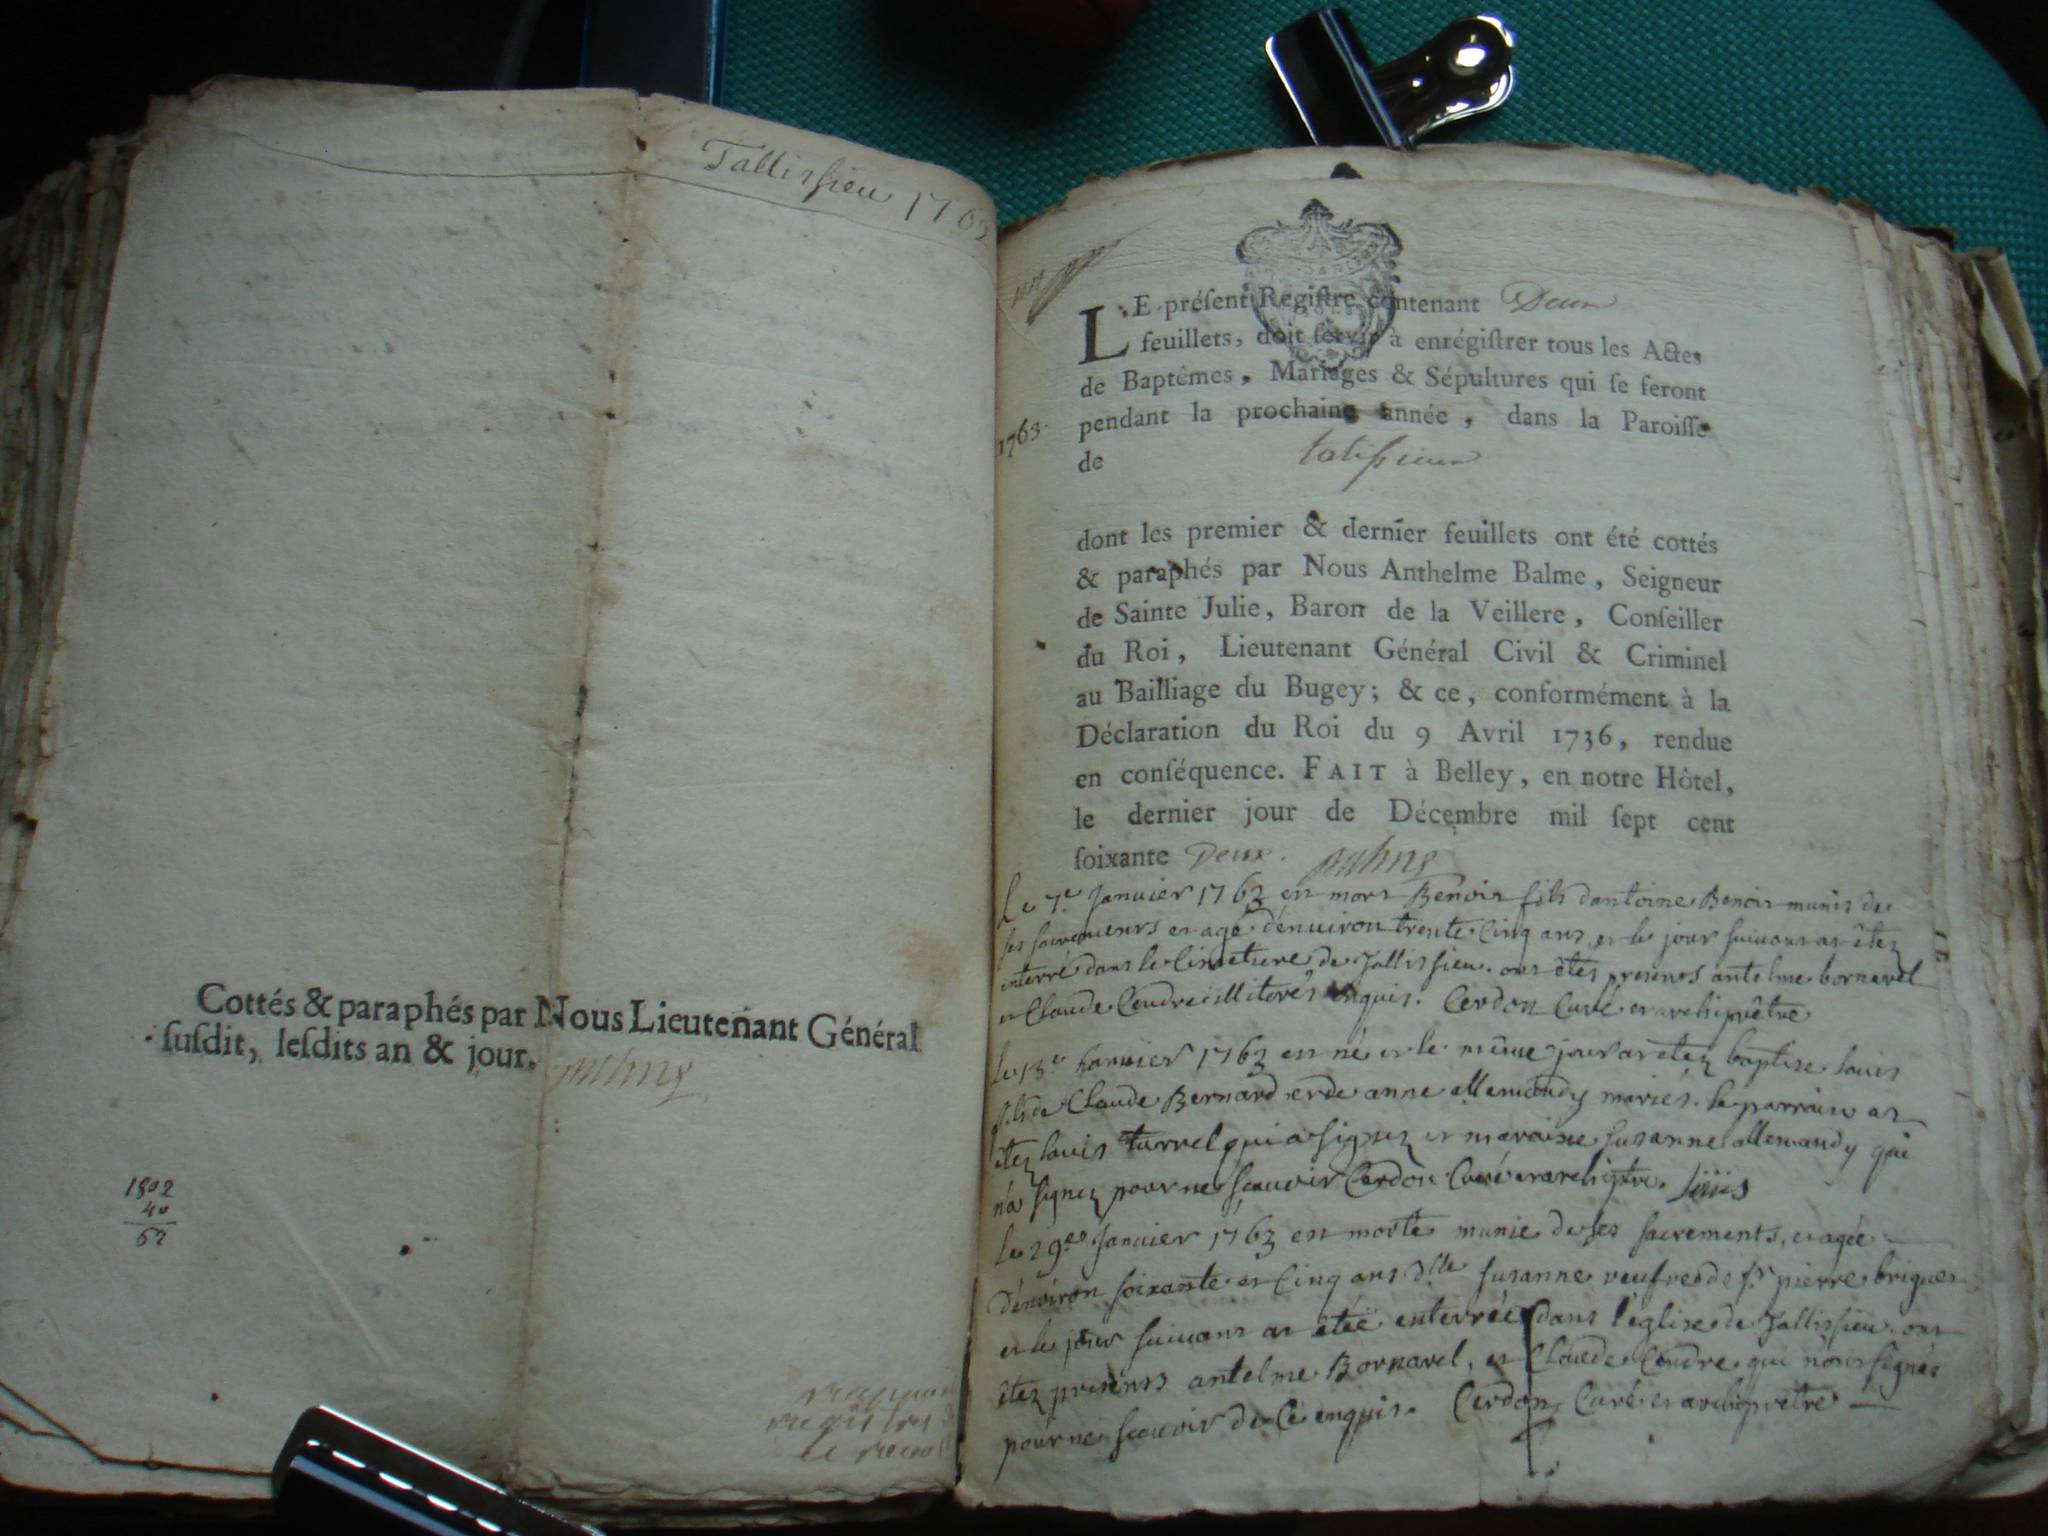 Tallissieu 1762
Cottés & paraphés par Nous Lieutenant Général
susdit, lesdits an & jour.
1802
40
62
LE préſent Regiſtre contenant Deux
feuillets, doit ſervir à enrégiſtrer tous les Actes
de Baptêmes, Mariages & Sépultures qui ſe feront
pendant la prochaine année, dans la Paroiſſe
1763.
de talissieux
dont les premier & dernier feuillets ont été cottés
& paraphés par Nous Anthelme Balme, Seigneur
de Sainte Julie, Baron de la Veillere, Conſeiller
du Roi, Lieutenant Général Civil & Criminel
au Bailliage du Bugey; & ce, conformément à la
Déclaration du Roi du 9 Avril 1736, rendue
en conſéquence. FAIT à Belley, en notre Hôtel,
le dernier jour de Décembre mil ſept cent
ſoixante Deux.
Le 7e Janvier 1763 est mort Benoit fils dantoine Benoit munis de
ses sacrements et agé dénuiron trente cinq ans, et le jour suivant at êtez
interré dans le Cimetiere de Tallissieu. ont êtes presents antelme bornavel
et Claude Cendre illiterés enquis. Cerdon Curé et archiprêtre
le 13e Janvier 1763 est né et le même jour at etez baptise louis
fils de Claude Bernard et de anne allemandy mariés. le parrain at
êtez louis turrel qui a signez et maraine susanne allemandy qui
n'a signez pour ne scauoir Cerdon Curé et archiptre.
le 29e Janvier 1763 est morte munie de ses sacrements, et agée
dénviron soixante et Cinq ans dlle susanne veufve de sr pierre briguet
et le jour suivant at êtée enterrée dans l'église de Tallissieu. ont
êtez presents antelme Bornavel, et Claude Cendre qui n'ont signés
pour ne scauoir de Ce enquis. Cerdon, Curé et archiprêtre